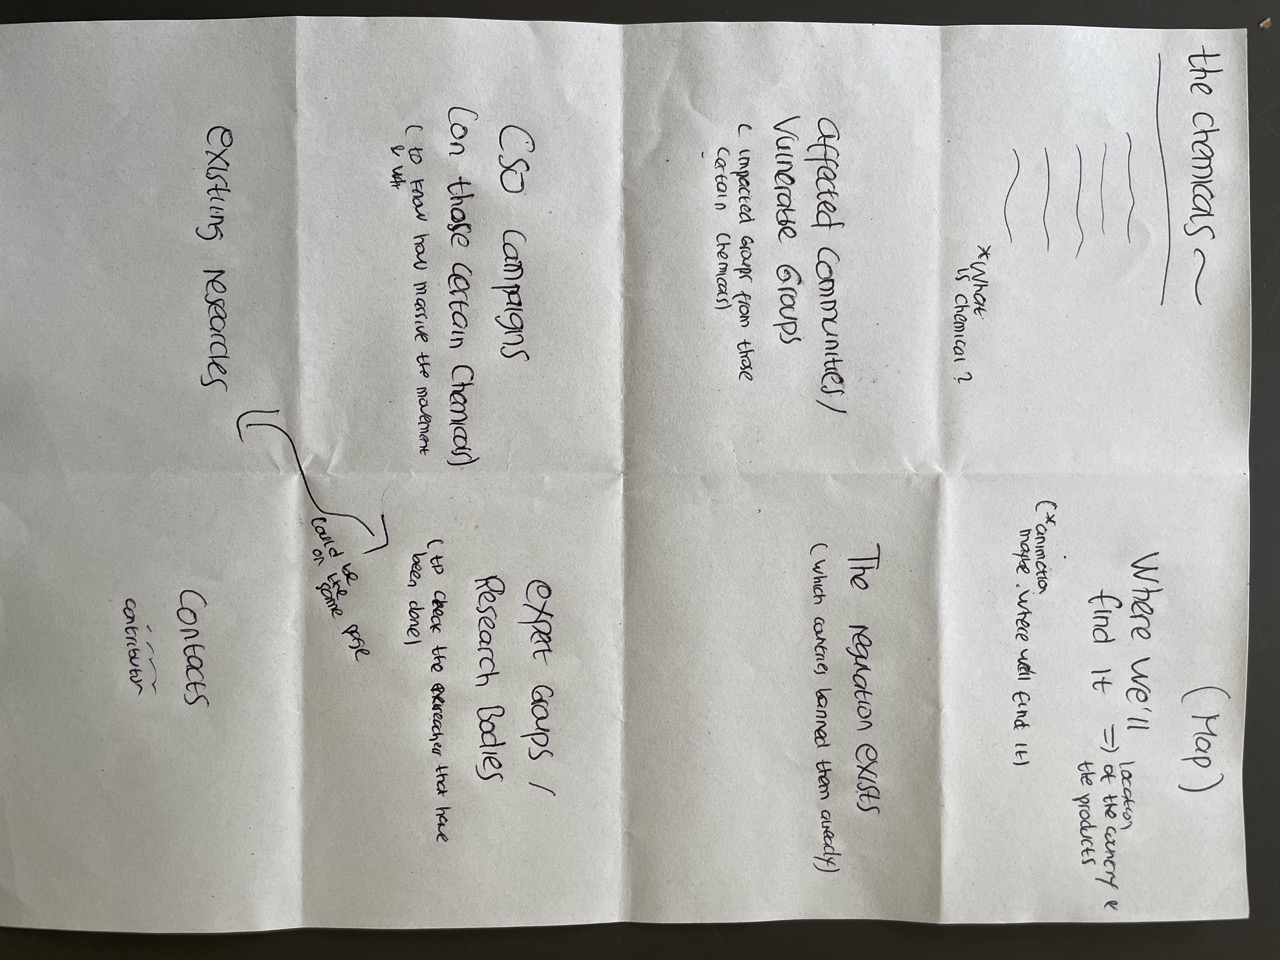 the chemicals
*What
is chemical ?
(Map)
Where we'll
find it => location
of the country &
the products
(*animation
maybe. where we'll find it)
affected communities/
Vulnerable Groups
( impacted Groups from those
certain chemicals)
The regulation exists
( which countries banned them already)
CSO Campaigns
(on those certain Chemicals)
( to know how massive the movement
&
expert Groups /
Research Bodies
( to check the that have
been done)
could be
on the
same page
existiing researches
Contacts
contributor